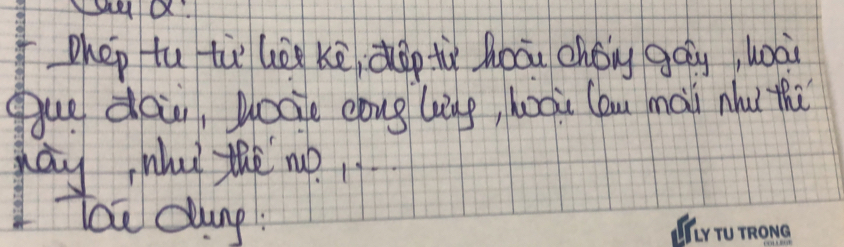 Câu 2:
- Phép tu từ liệt kê, điệp từ hoặc chống gậy, hoặc
que dài, hoặc cong lưng, hoặc lau mãi như thế
này, như thế nọ,....
- Tác dụng:
LY TU TRONG
COLLEGE